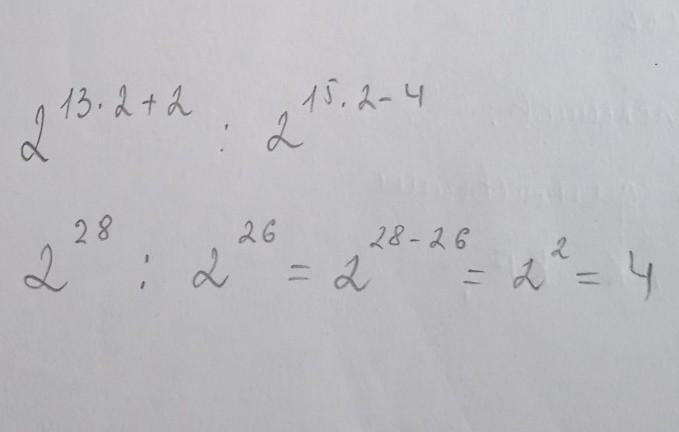 2^{13·2+2} : 2^{15·2-4}
2^{28} : 2^{26} = 2^{28-26} = 2^2 = 4